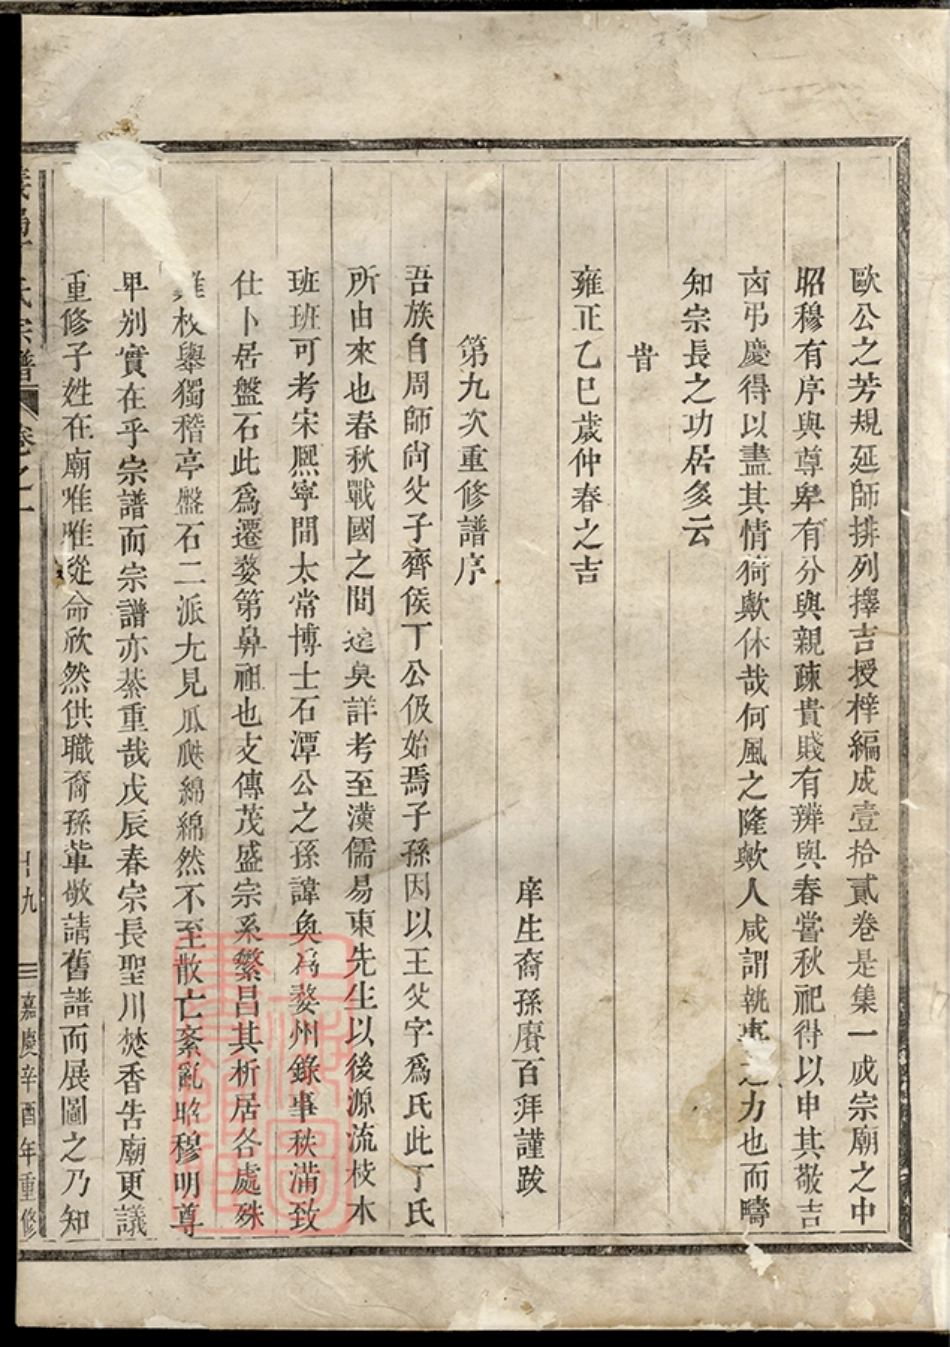 歐公之芳規延師排列擇吉授梓編成壹拾貳卷是集一成宗廟之中
昭穆有序與尊卑有分與親疎貴賤有辨與春嘗秋祀得以申其敬吉
㐫弔慶得以盡其情猗歟休哉何風之隆歟人咸謂執事之力也而疇
知宗長之功居多云
旹
雍正乙巳歲仲春之吉
庠生裔孫賡百拜謹跋
第九次重修譜序
吾族自周師尙父子齊侯丁公伋始焉子孫因以王父字爲氏此丁氏
所由來也春秋戰國之間遠矣詳考至漢儒易東先生以後源流枝木
班班可考宋熈寧間太常博士石潭公之孫諱奐爲婺州錄事秩滿致
仕卜居盤石此爲遷婺第鼻祖也攴傳茂盛宗系繁昌其析居各處殊
難枚舉獨稽亭盤石二派尢見瓜瓞綿綿然不至散亡紊亂昭穆明尊
早别實在乎宗譜而宗譜亦綦重哉戊辰春宗長聖川焚香告廟更議
重修子姓在廟唯唯從命欣然供職裔孫軰敬請舊譜而展圖之乃知
氏宗譜 卷之一 九 嘉慶辛酉年重修